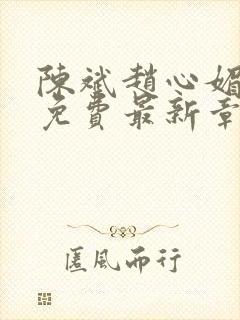 陳斌趙心媚
免費最新章
匿風而行